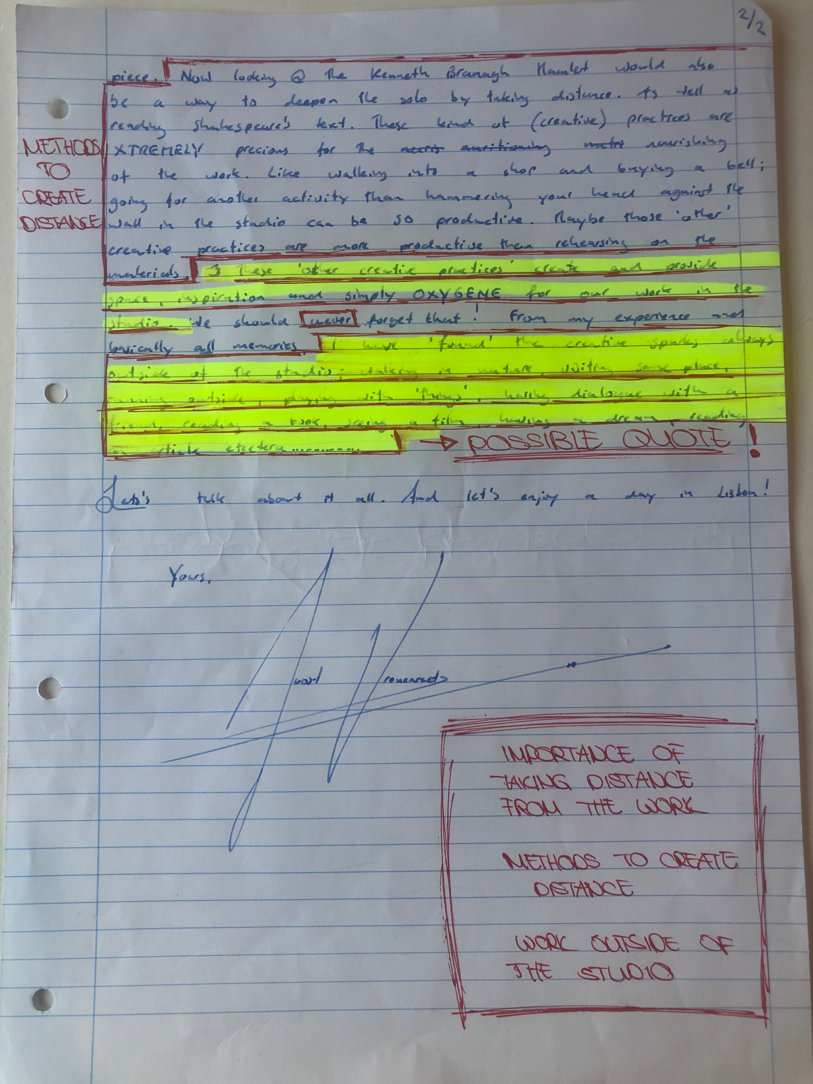 2/2
piece. Now looking @ the Kenneth Branagh Hamlet would also
be a way to deepen the solo by taking distance. As well as
reading Shakespeare's text. These kind of (creative) practices are
XTREMELY precious for the nourishing
of the work. Like walking into a shop and buying a bell;
going for another activity than hammering your head against the
wall in the studio can be so productive. Maybe those 'other'
creative practices are more productive then rehearsing on the
materials. These 'other creative practices' create and provide
space, inspiration and simply OXYGENE for our work in the
studio. We should never forget that! From my experience and
basically all memories I have 'found' the creative sparks always
outside of the studio; walking in nature, visiting some place,
running outside, playing with 'things', having dialogue with a
friend, reading a book, seeing a film, having a dream, reading
an article etcetera..........
METHODS
TO
CREATE
DISTANCE
→ POSSIBLE QUOTE!
Let's talk about it all. And let's enjoy a day in Lisbon!
Yours,
IMPORTANCE OF
TAKING DISTANCE
FROM THE WORK
METHODS TO CREATE
DISTANCE
WORK OUTSIDE OF
THE STUDIO